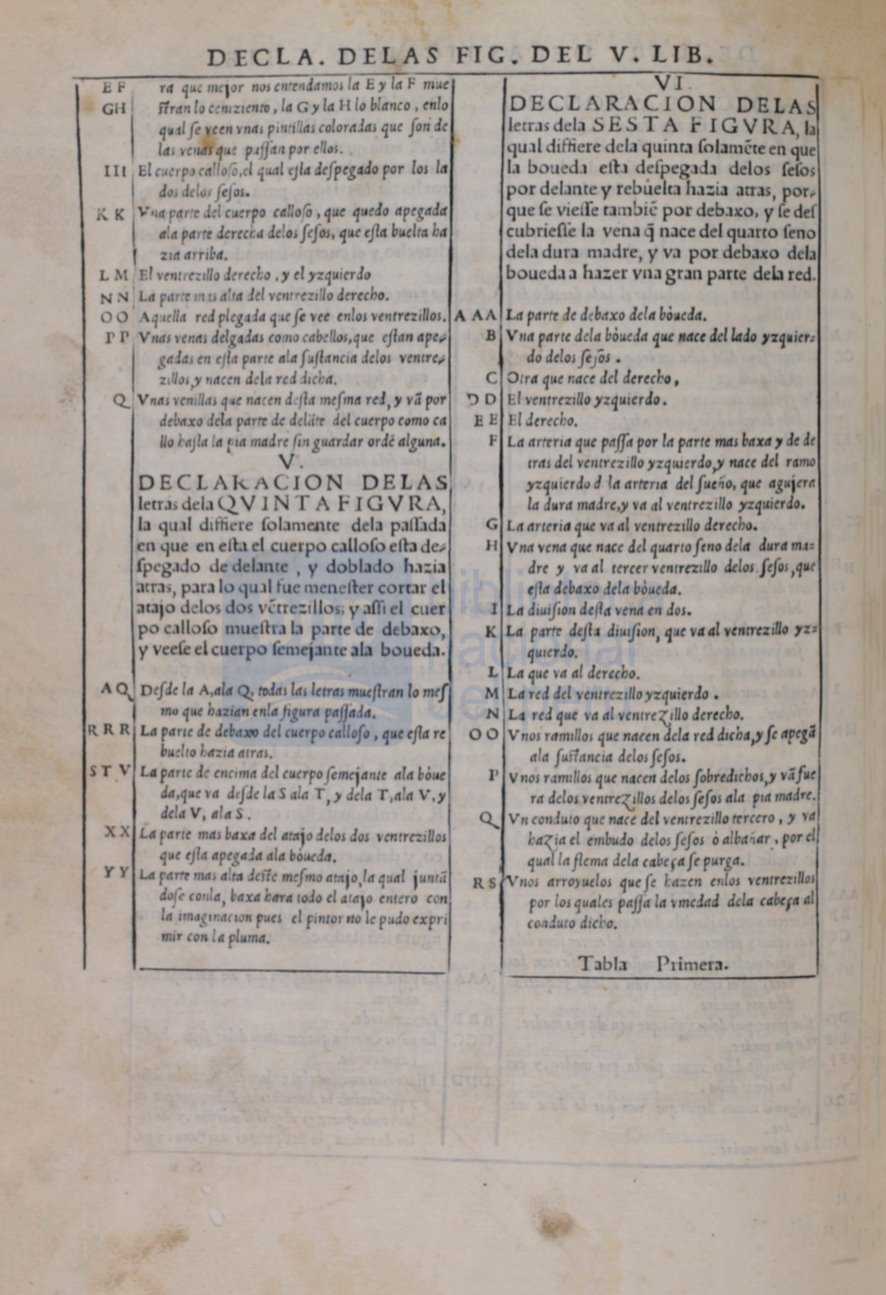 DECLA. DELAS FIG. DEL V. LIB.
E F ra que mejor nos entendamos la E y la F mue
GH ſtran lo ceniziento, la G y la H lo blanco, enlo
qual ſe veen vnas pintillas coloradas que ſon de
las venas que paſſan por ellos.
III El cuerpo calloſo, el qual eſta deſpegado por los la
dos delos ſeſos.
K K Vna parte del cuerpo calloſo, que quedo apegada
ala parte derecha delos ſeſos, que eſta buelta ha
zia arriba.
L M El ventrezillo derecho, y el yzquierdo
N N La parte mas alta del ventrezillo derecho.
O O Aquella red plegada que ſe vee enlos ventrezillos.
P P Vnas venas delgadas como cabellos, que eſtan ape-
gadas en eſta parte ala ſuſtancia delos ventre-
zillos, y nacen dela red dicha.
Q Vnas venillas que nacen deſta meſma red, y vã por
debaxo dela parte de delãte del cuerpo como ca
llo haſta la pia madre ſin guardar ordẽ alguna.
V.
DECLARACION DELAS
letras dela QVINTA FIGVRA,
la qual differe ſolamente dela paſſada
en que en eſta el cuerpo calloſo eſta de-
ſpegado de delante, y doblado hazia
atras, para lo qual fue meneſter cortar el
atajo delos dos vẽtrezillos; y aſſi el cuer
po calloſo mueſtra la parte de debaxo,
y veeſe el cuerpo ſemejante ala boueda.
A Q Deſde la A, ala Q, todas las letras mueſtran lo meſ
mo que hazian enla figura paſſada.
R R R La parte de debaxo del cuerpo calloſo, que eſta re
buelto hazia atras.
S T V La parte de encima del cuerpo ſemejante ala bòue
da, que va deſde la S ala T, y dela T, ala V, y
dela V, ala S.
X X La parte mas baxa del atajo delos dos ventrezillos
que eſta apegada ala bòueda.
Y Y La parte mas alta deſte meſmo atajo, la qual juntã
doſe conla, baxa hara todo el atajo entero con
la imaginacion pues el pintor no le pudo expri
mir con la pluma.
VI.
DECLARACION DELAS
letras dela SESTA FIGVRA, la
qual differe dela quinta ſolamẽte en que
la boueda eſta deſpegada delos ſeſos
por delante y rebuelta hazia atras, por-
que ſe vieſſe tambiẽ por debaxo, y ſe deſ
cubrieſſe la vena q̃ nace del quarto ſeno
dela dura madre, y va por debaxo dela
boueda a hazer vna gran parte dela red.
A AA La parte de debaxo dela bòueda.
B Vna parte dela bòueda que nace del lado yzquier-
do delos ſeſos.
C Otra que nace del derecho,
D D El ventrezillo yzquierdo.
E E El derecho.
F La arteria que paſſa por la parte mas baxa y de de
tras del ventrezillo yzquierdo, y nace del ramo
yzquierdo d la arteria del ſueño, que agujera
la dura madre, y va al ventrezillo yzquierdo.
G La arteria que va al ventrezillo derecho.
H Vna vena que nace del quarto ſeno dela dura ma-
dre y va al tercer ventrezillo delos ſeſos, que
eſta debaxo dela bòueda.
I La diuiſion deſta vena en dos.
K La parte deſta diuiſion, que va al ventrezillo yz-
quierdo.
L La que va al derecho.
M La red del ventrezillo yzquierdo.
N La red que va al ventrezillo derecho.
O O Vnos ramillos que nacen dela red dicha, y ſe apegã
ala ſuſtancia delos ſeſos.
P Vnos ramillos que nacen delos ſobredichos, y vã fue
ra delos ventrezillos delos ſeſos ala pia madre.
Q Vn conduto que nace del ventrezillo tercero, y va
hazia el embudo delos ſeſos ò albañar, por el
qual la flema dela cabeça ſe purga.
R S Vnos arroyuelos que ſe hazen enlos ventrezillos
por los quales paſſa la vmedad dela cabeça al
conduto dicho.
Tabla Primera.